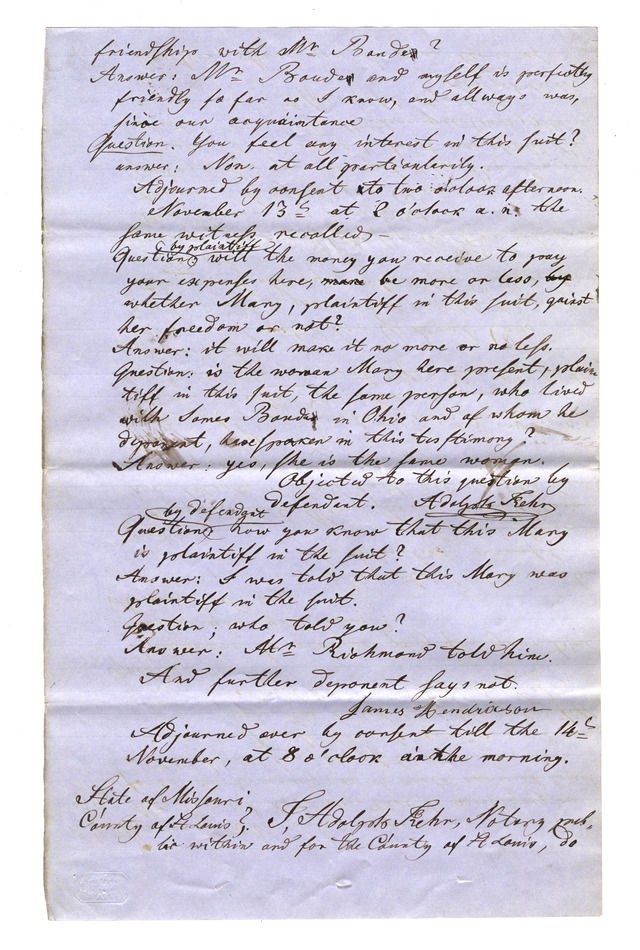 friendship with Mr Bouder?
Answer: Mr Bouder and myself is perfectly
friendly so far as I know, and allways was,
since our acquaintance
Question. You feel any interest in this suit?
answer: Non, at all partioularily.
Adjourned by consent to two o'clock afternoon.
November 13th at 2 o'clock a.n. the
same witness recalled –
by plaintiff
Question: will the money you receive to pay
your expenses here, be more or less,
whether Mary, plaintiff in this suit,
her freedom or not?
Answer: it will make it no more or no less.
Question: is the woman Mary here present, plain
tiff in this suit, the same person, who lived
with James Bouder in Ohio and of whom he
deponent, have spoken in this testimony?
Answer: yes, she is the same woman.
Objected to this question by
defendant. Adolph Fehr
by defendant
Question how you know that this Mary
is plaintiff in the suit?
Answer: I was told that this Mary was
plaintiff in the suit.
Question; who told you?
Answer: Mr Richmond told him.
And further deponent says not.
James Hendrixson
Adjourned over by consent till the 14th
November, at 8 o'clock in the morning.
State of Missouri
County of St Louis I, Adolph Fehr, Notary pub-
lic within and for the County of St Louis, do